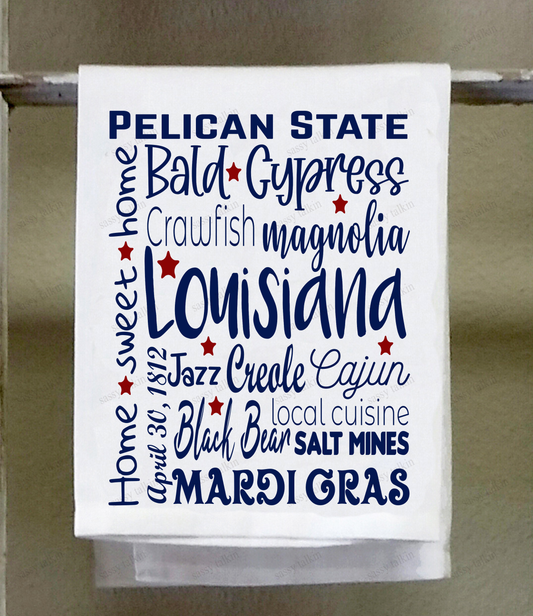 PELICAN STATE
Bald Cypress
Crawfish magnolia
Louisiana
Jazz Creole Cajun
local cuisine
Black Bear SALT MINES
MARDI GRAS
Home sweet home
April 30, 1812
sassy talkin